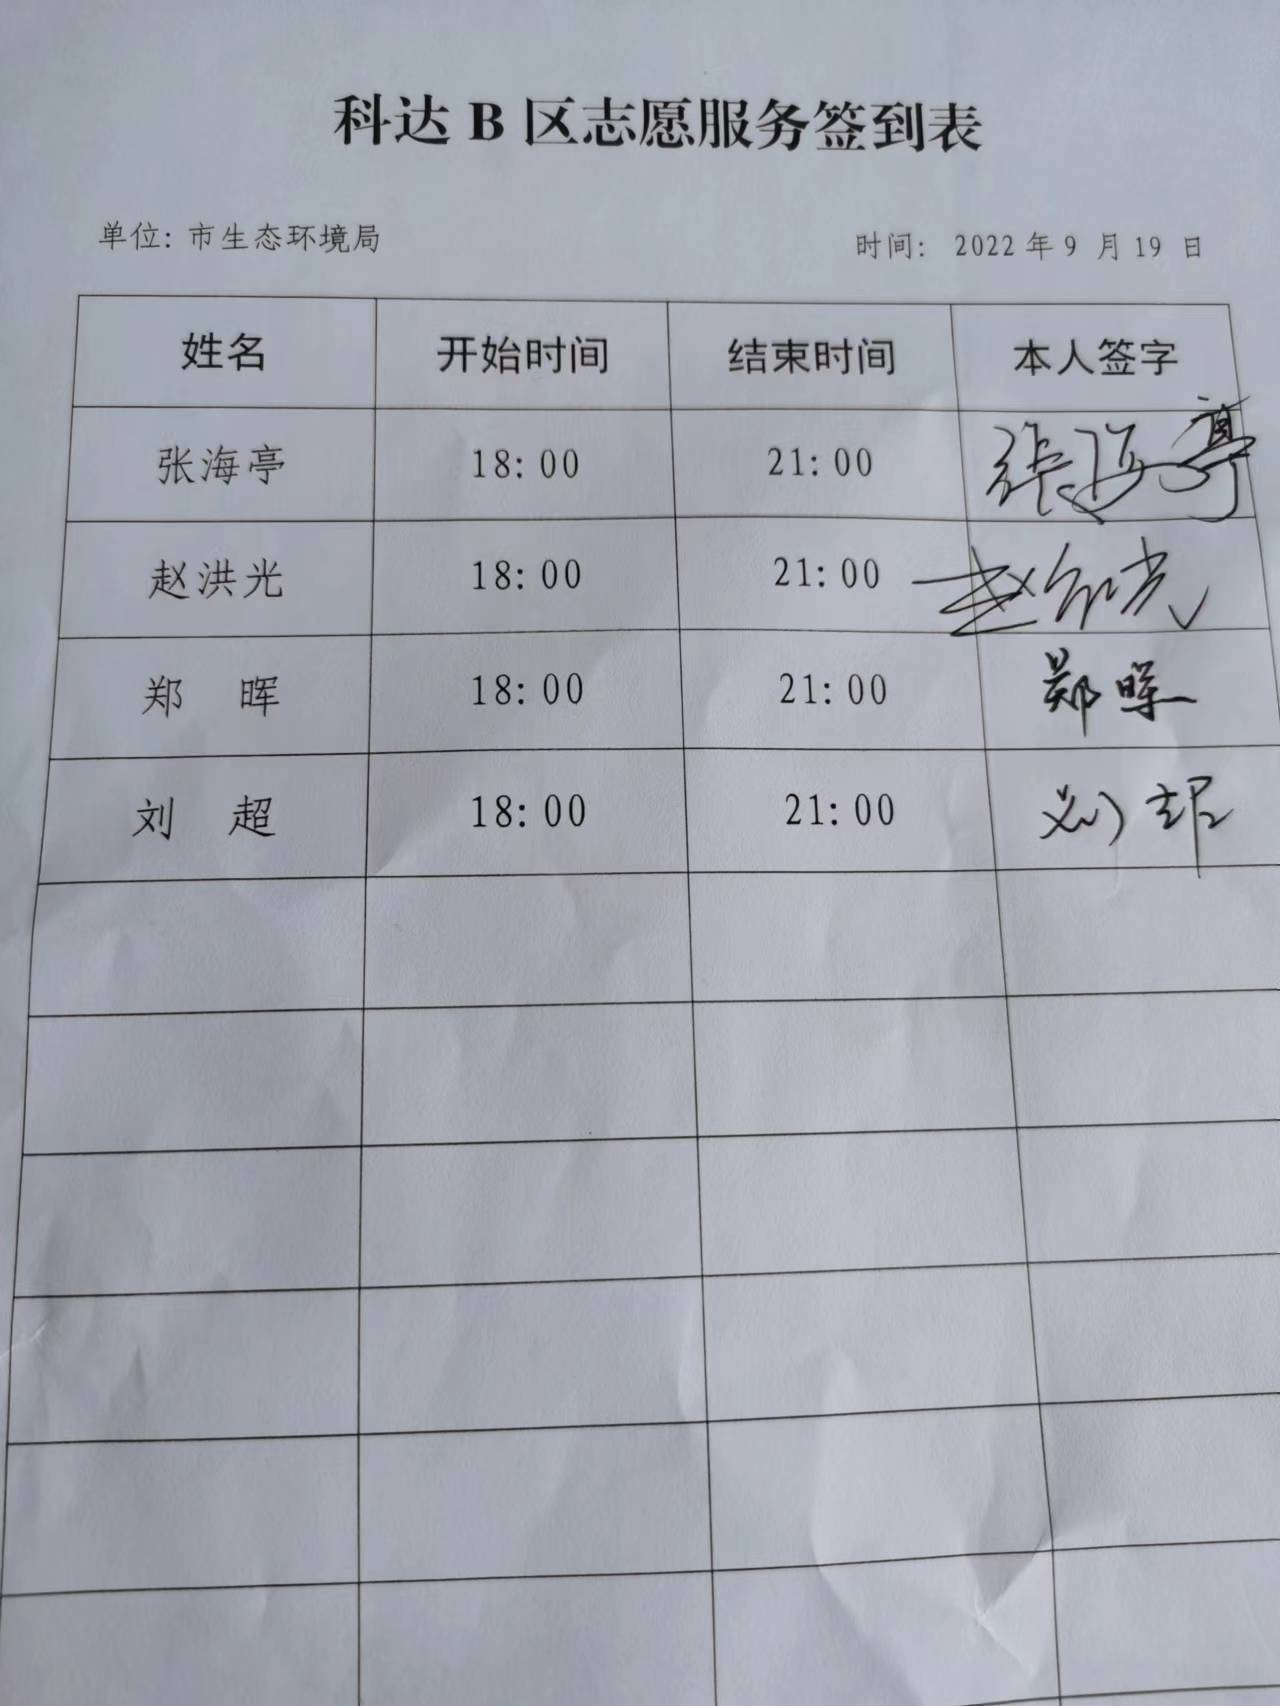 科达 B 区志愿服务签到表
单位: 市生态环境局 时间: 2022 年 9 月 19 日
姓名 开始时间 结束时间 本人签字
张海亭 18:00 21:00 张海亭
赵洪光 18:00 21:00 赵洪光
郑 晖 18:00 21:00 郑晖
刘 超 18:00 21:00 刘超